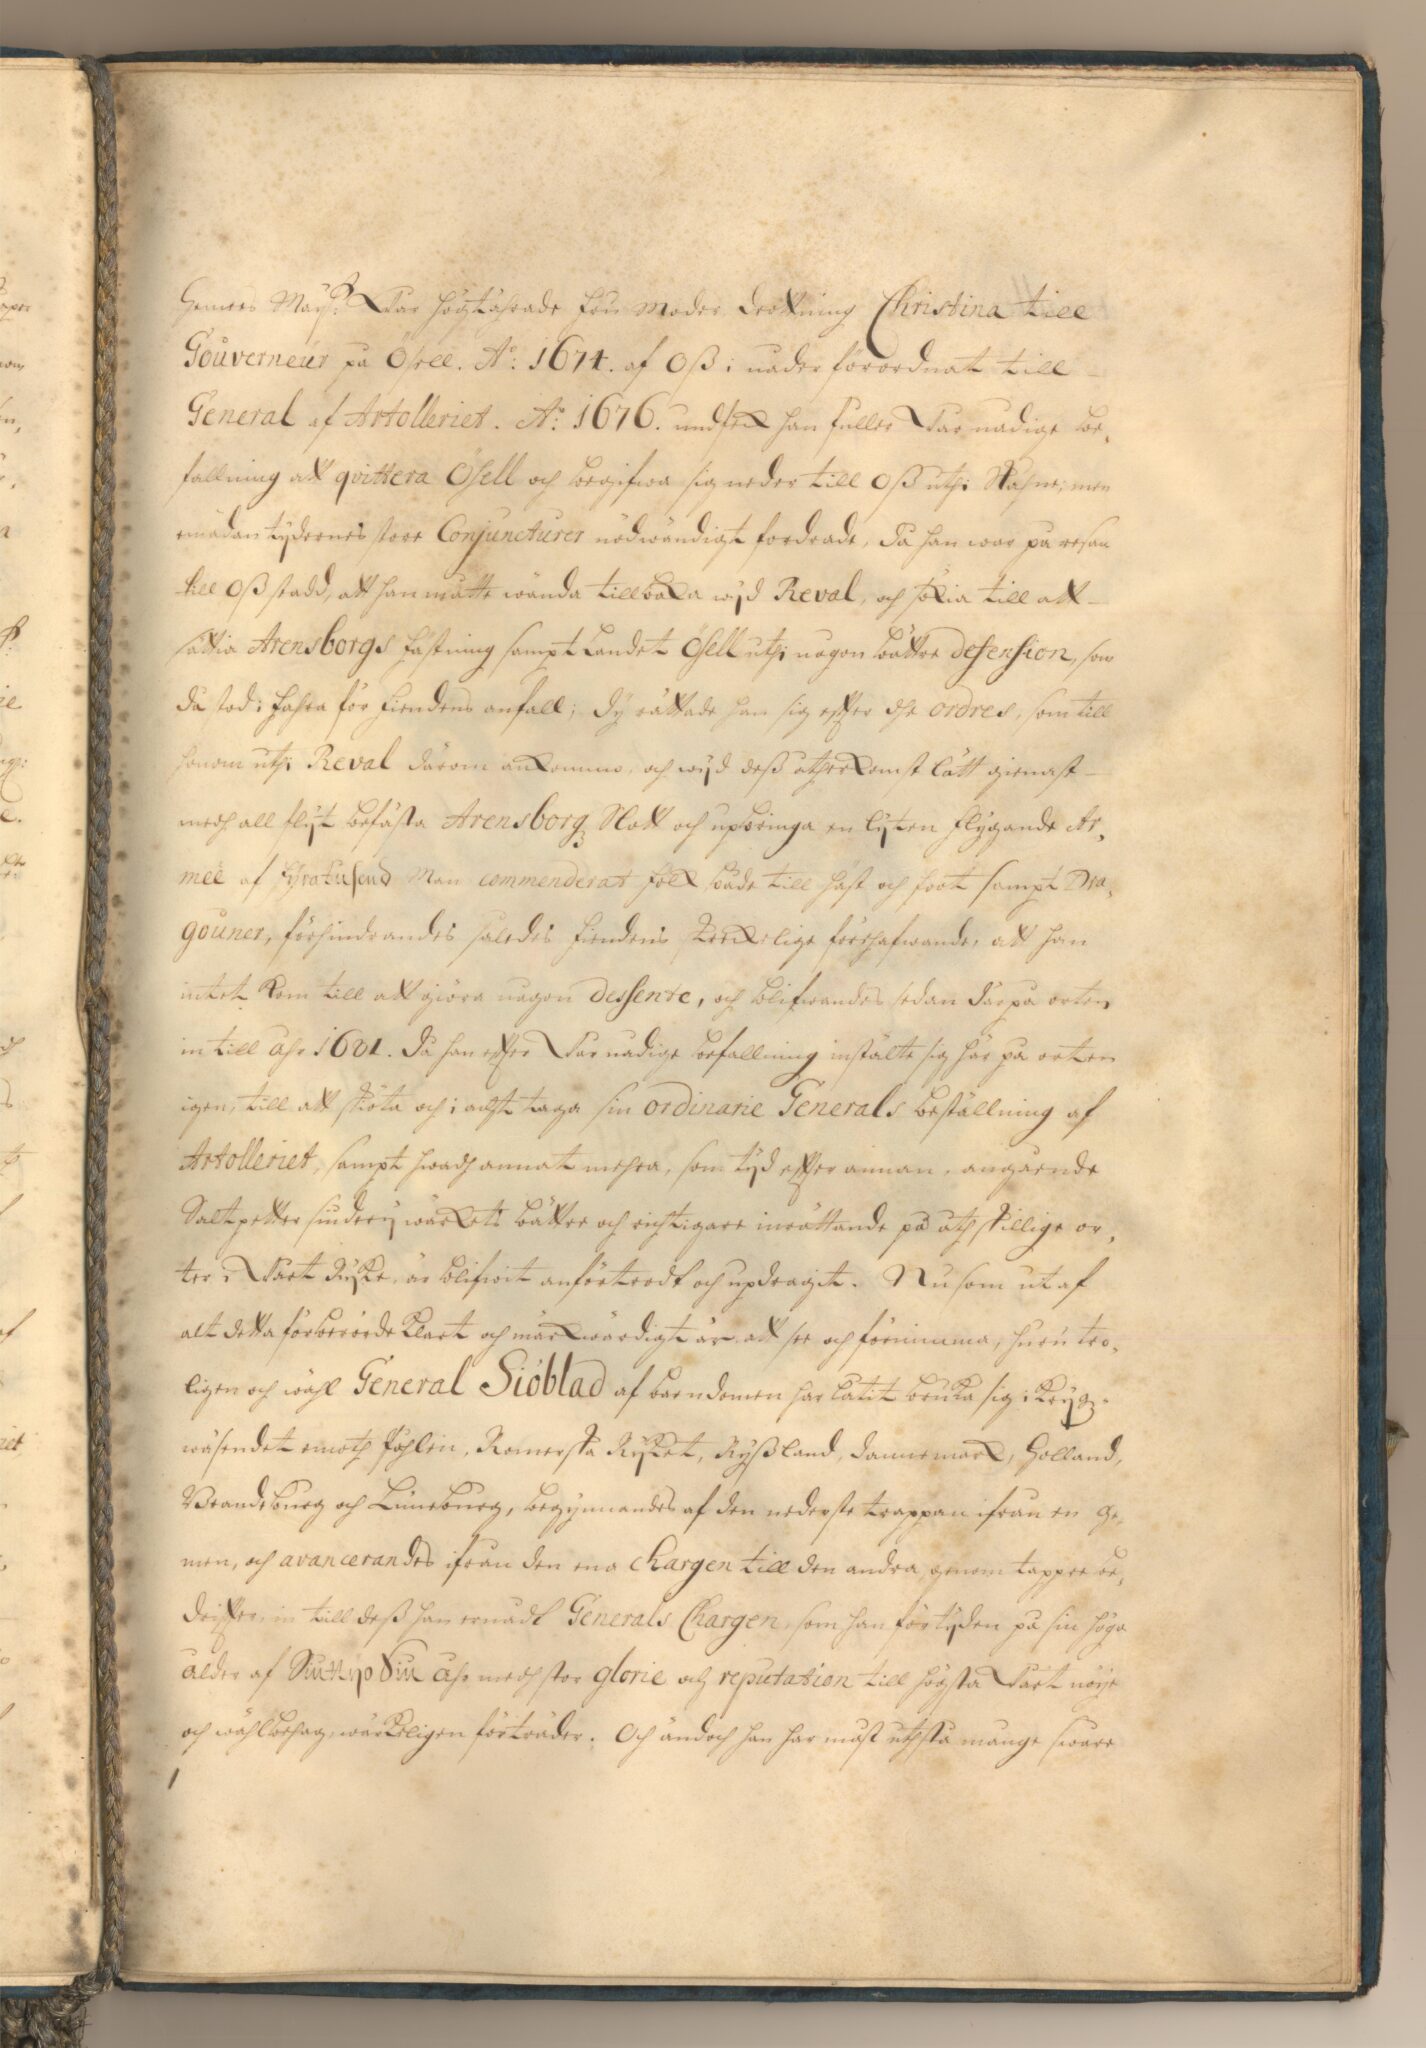 Hennes Maij:tt Wår högtährade Fru Moder Drottning Christina till
Gouverneur på Ösell. A:o 1674. af Oß i nåder förordnat till
General af Artolleriet. A:o 1676. undfick han fuller Wår nådige be¬
fallning att qvittera Ösell och begifwa sig neder till Oß uthi Skåhne; men
emädan tydernes store Conjuncturer nödwändigt fordrade, då han war på resan
till Oß stadd, att han måtte wända tillbaka wyd Reval, och söria till att
sättia Arensborgs Fästning sampt Landet Ösell uthi någon bättre defension, som
då stod i fahra för Fiendens anfall; Dy rättade han sig effter dhe ordres, som till
honom uthi Reval därom ankommo, och wyd deß åtherkomst lätt gienast
medh all flyt befästa Arensborg Slott och upbringa en lyten flygande Ar¬
meé af Fyratusend Man commenderat Folk både till häst och foot sampt Dra¬
gouner, förhindrandes således Fiendens förehafwande, att han
intet kom till att giöra någon dessente, och blifwandes sedan där på orten
in till åhr 1681. då han effter Wår nådige befallning instälte sig här på orten
igen, till att skiöta och i acht taga sin ordinarie Generals beställning af
Artolleriet, sampt hwadh annat mehra, som tyd effter annan, angående
Saltpetter siuderij wärkets bättre och richtigare inrättande på åthskillige or¬
ter i Wårt Ryke, är blifwit anförtrodt och updragit. Nu som ut af
alt detta förberörde klart och märkwärdigt är att see och förnimma, huru tro¬
ligen och wähl General Siöblad af barndomen har låtit bruka sig i krygz¬
wäsendet emoth Påhlen, Romerska Ryket, Ryßland, Dannemark, Holland,
Brandeburg och Lüneburg, begynnandes af den nederste trappan ifrån en Ge¬
men, och avancerandes ifrån den ena Chargen till den andra, genom tappre be¬
driffter, in till deß han ernådt Generals Chargen, som han för tyden på sin höga
ålder af Siuttijo Siu åhr medh stor glorie och reputation till högsta Wårt nöije
och wählbehag, wärkeligen förträder. Och ändoch han har måst uthstå månge swåre